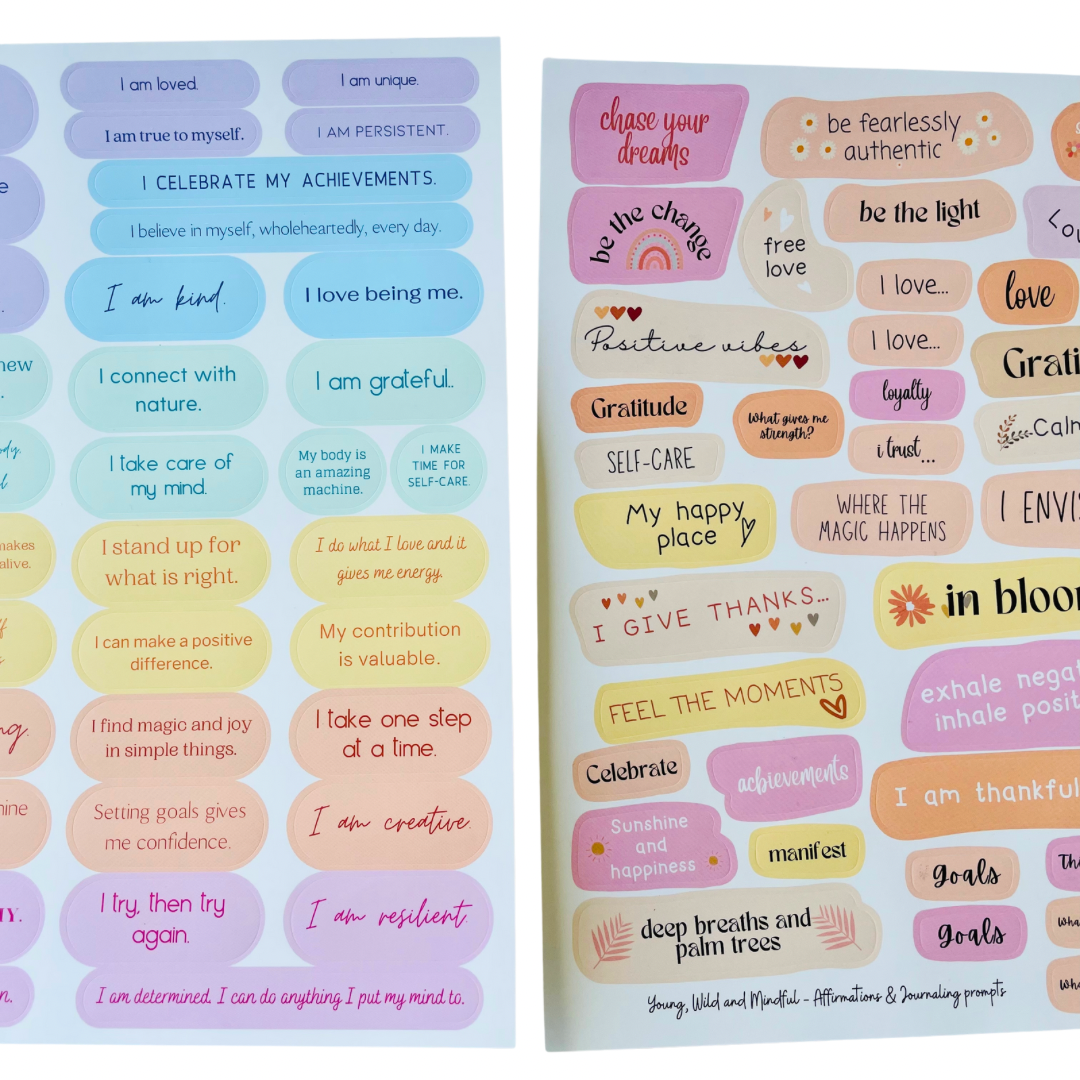 I am loved.
I am unique.
I am true to myself.
I AM PERSISTENT.
I CELEBRATE MY ACHIEVEMENTS.
I believe in myself, wholeheartedly, every day.
I am kind.
I love being me.
I connect with
nature.
I am grateful..
I take care of
my mind.
My body is
an amazing
machine.
I MAKE
TIME FOR
SELF-CARE.
alive.
I stand up for
what is right.
I do what I love and it
gives me energy.
I can make a positive
difference.
My contribution
is valuable.
I find magic and joy
in simple things.
I take one step
at a time.
Setting goals gives
me confidence.
I am creative.
I try, then try
again.
I am resilient.
I am determined. I can do anything I put my mind to.
chase your
dreams
be fearlessly
authentic
be the change
free
love
be the light
I love...
love
Positive vibes
I love...
Gratitude
What gives me
strength?
loyalty
SELF-CARE
i trust...
My happy
place
WHERE THE
MAGIC HAPPENS
I GIVE THANKS...
in bloo
FEEL THE MOMENTS
exhale nega
inhale posit
Celebrate
achievements
I am thankful
Sunshine
and
happiness
manifest
goals
deep breaths and
palm trees
goals
Young, Wild and Mindful - Affirmations & Journaling prompts